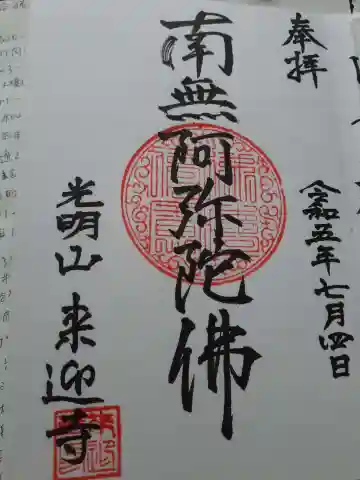 奉拝
令和五年七月四日
南無阿弥陀佛
光明山 来迎寺